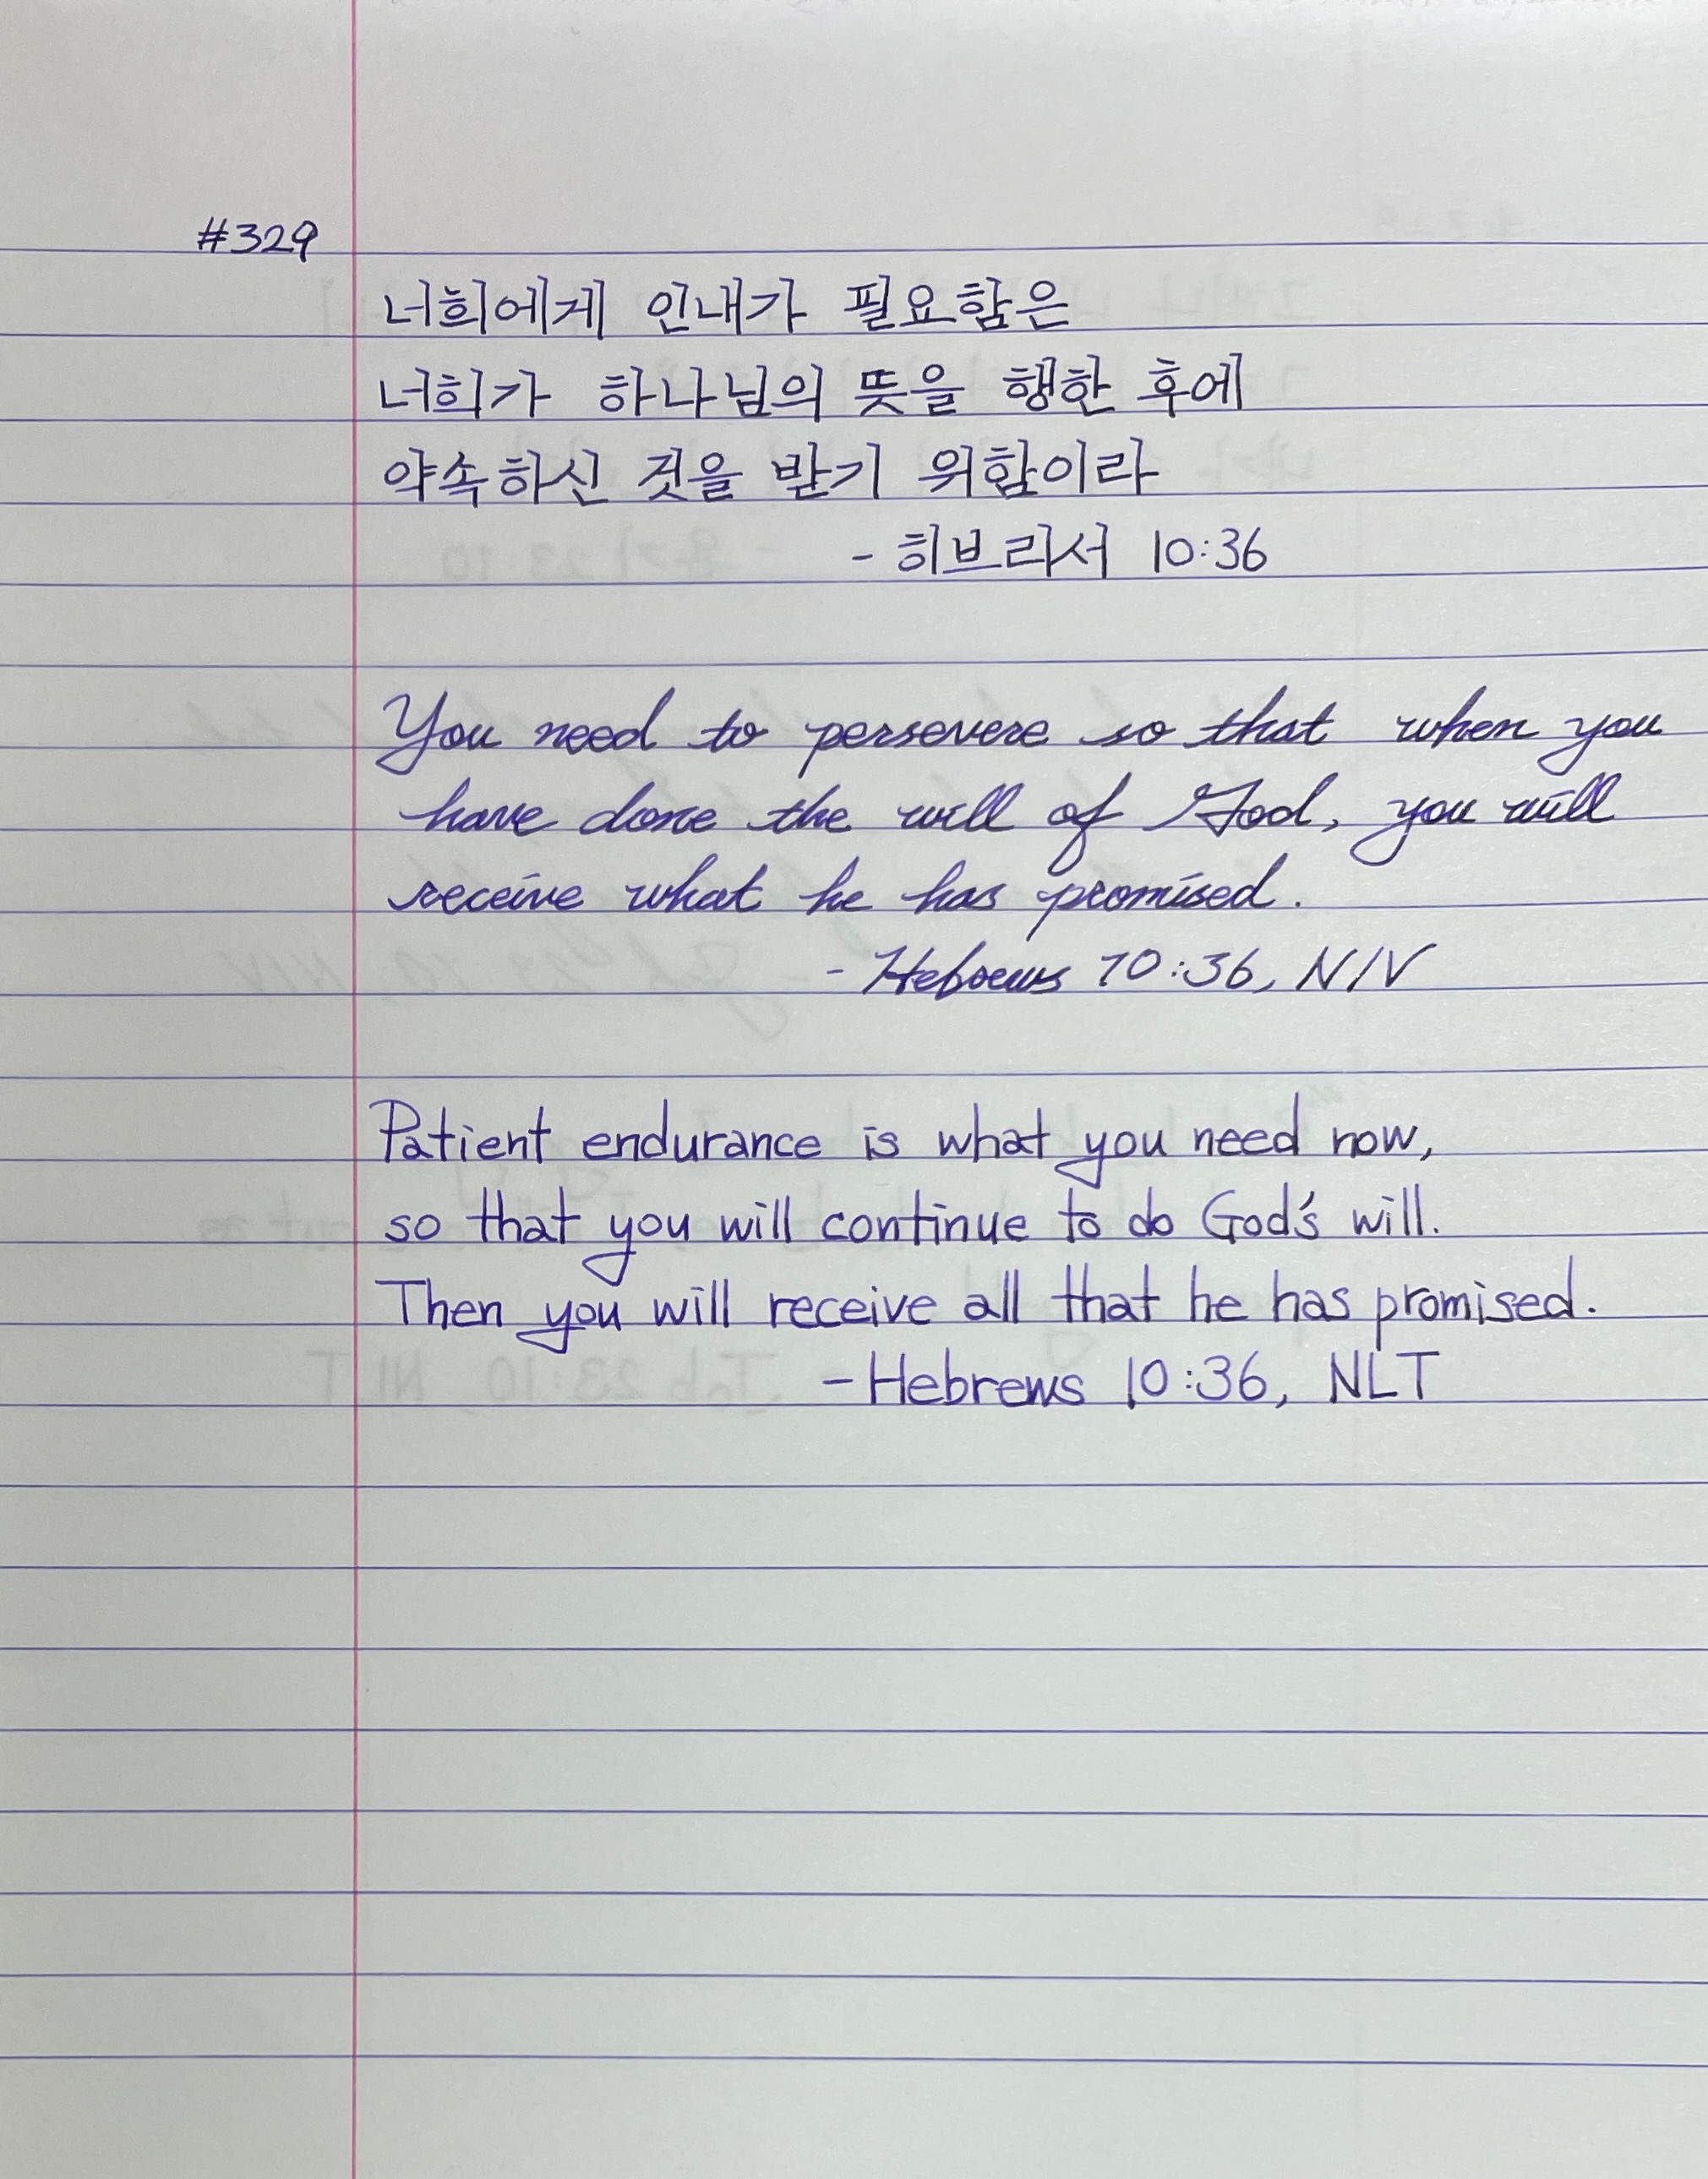 #329
너희에게 인내가 필요함은
너희가 하나님의 뜻을 행한 후에
약속하신 것을 받기 위함이라
- 히브리서 10:36
You need to persevere so that when you
have done the will of God, you will
receive what he has promised.
- Hebrews 10:36, NIV
Patient endurance is what you need now,
so that you will continue to do God's will.
Then you will receive all that he has promised.
- Hebrews 10:36, NLT